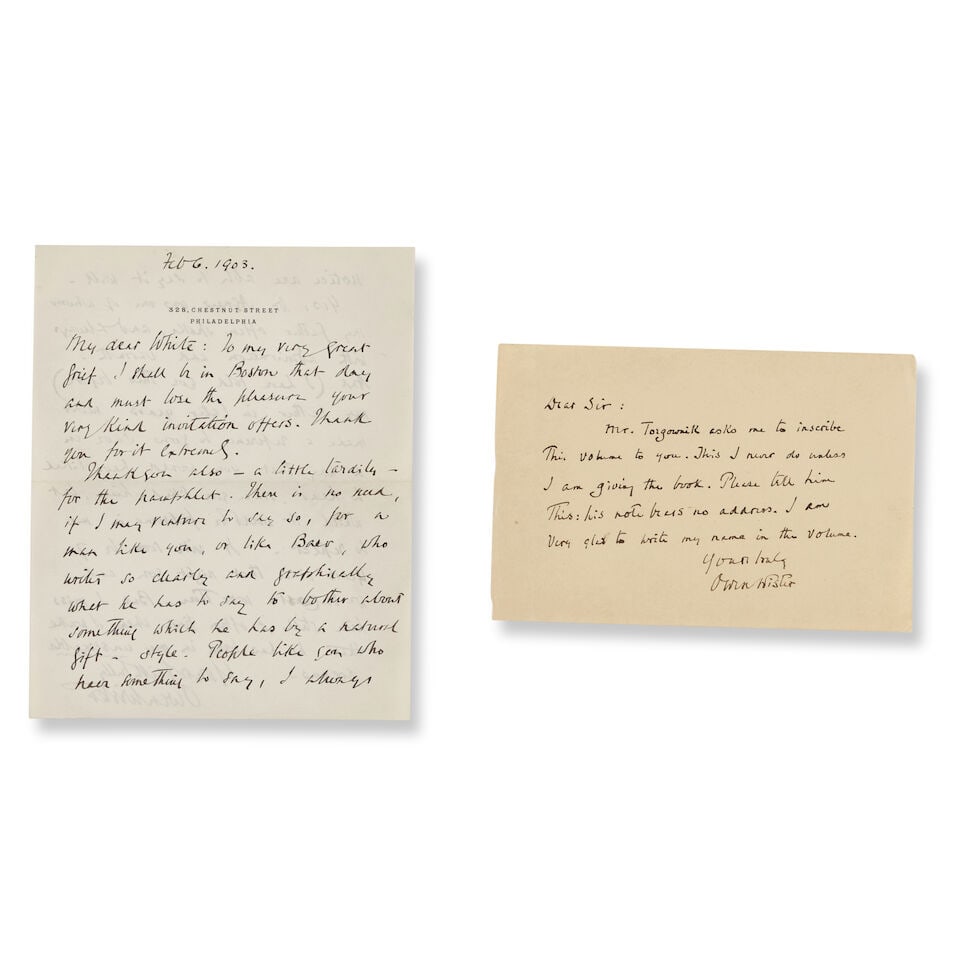 Feb 6. 1903.
328, CHESTNUT STREET
PHILADELPHIA
My dear White: To my very great
grief I shall be in Boston that day
and must lose the pleasure your
very kind invitation offers. Thank
you for it extremely.
Thank you also – a little tardily –
for the pamphlet. There is no need,
if I may venture to say so, for a
man like you, or like Baer, who
writes so clearly and graphically
what he has to say to bother about
something which he has by a natural
gift – style. People like you, who
have something to say, I always
Dear Sir:
Mr. Torgownik asks me to inscribe
This volume to you. This I never do unless
I am giving the book. Please tell him
This: his note bears no address. I am
Very glad to write my name in the volume.
Yours truly
Owen Wister